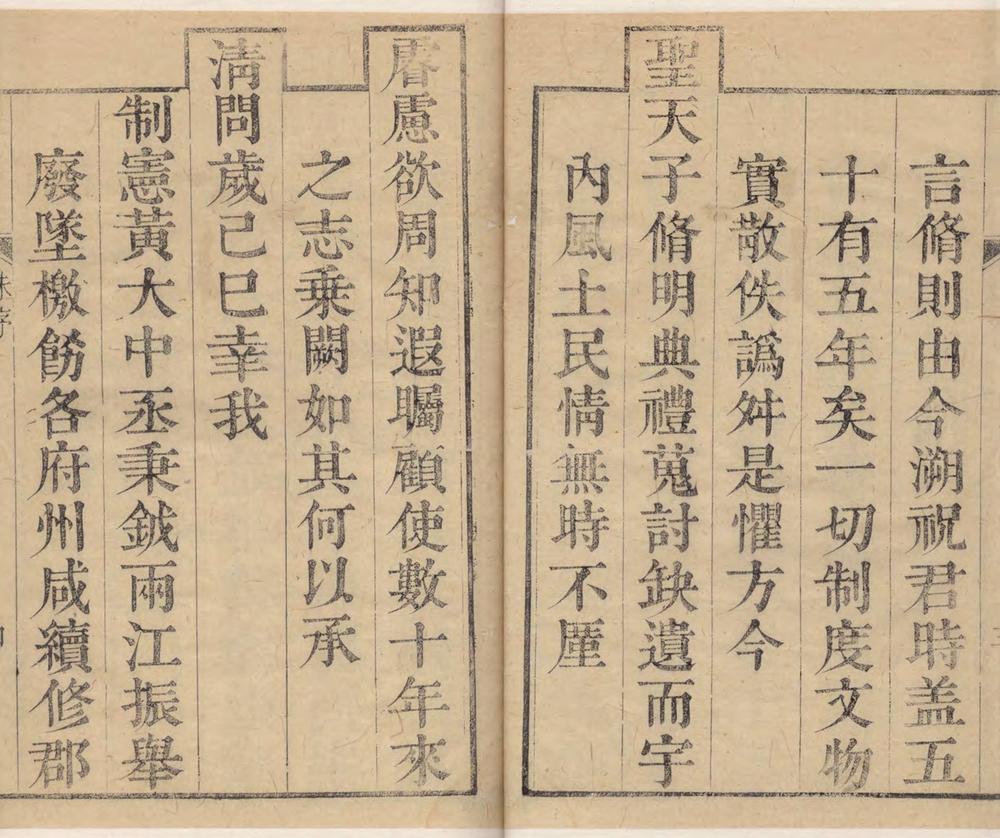 言脩則由今溯祝君時盖五
十有五年矣一切制度文物
實散佚譌舛是懼方今
聖天子脩明典禮蒐討缺遺而宇
內風土民情無時不厪
睿慮欲周知遐矚顧使數十年來
之志乗闕如其何以承
清問歲己巳幸我
制憲黃大中丞秉鉞兩江振舉
廢墜檄飭各府州咸續修郡